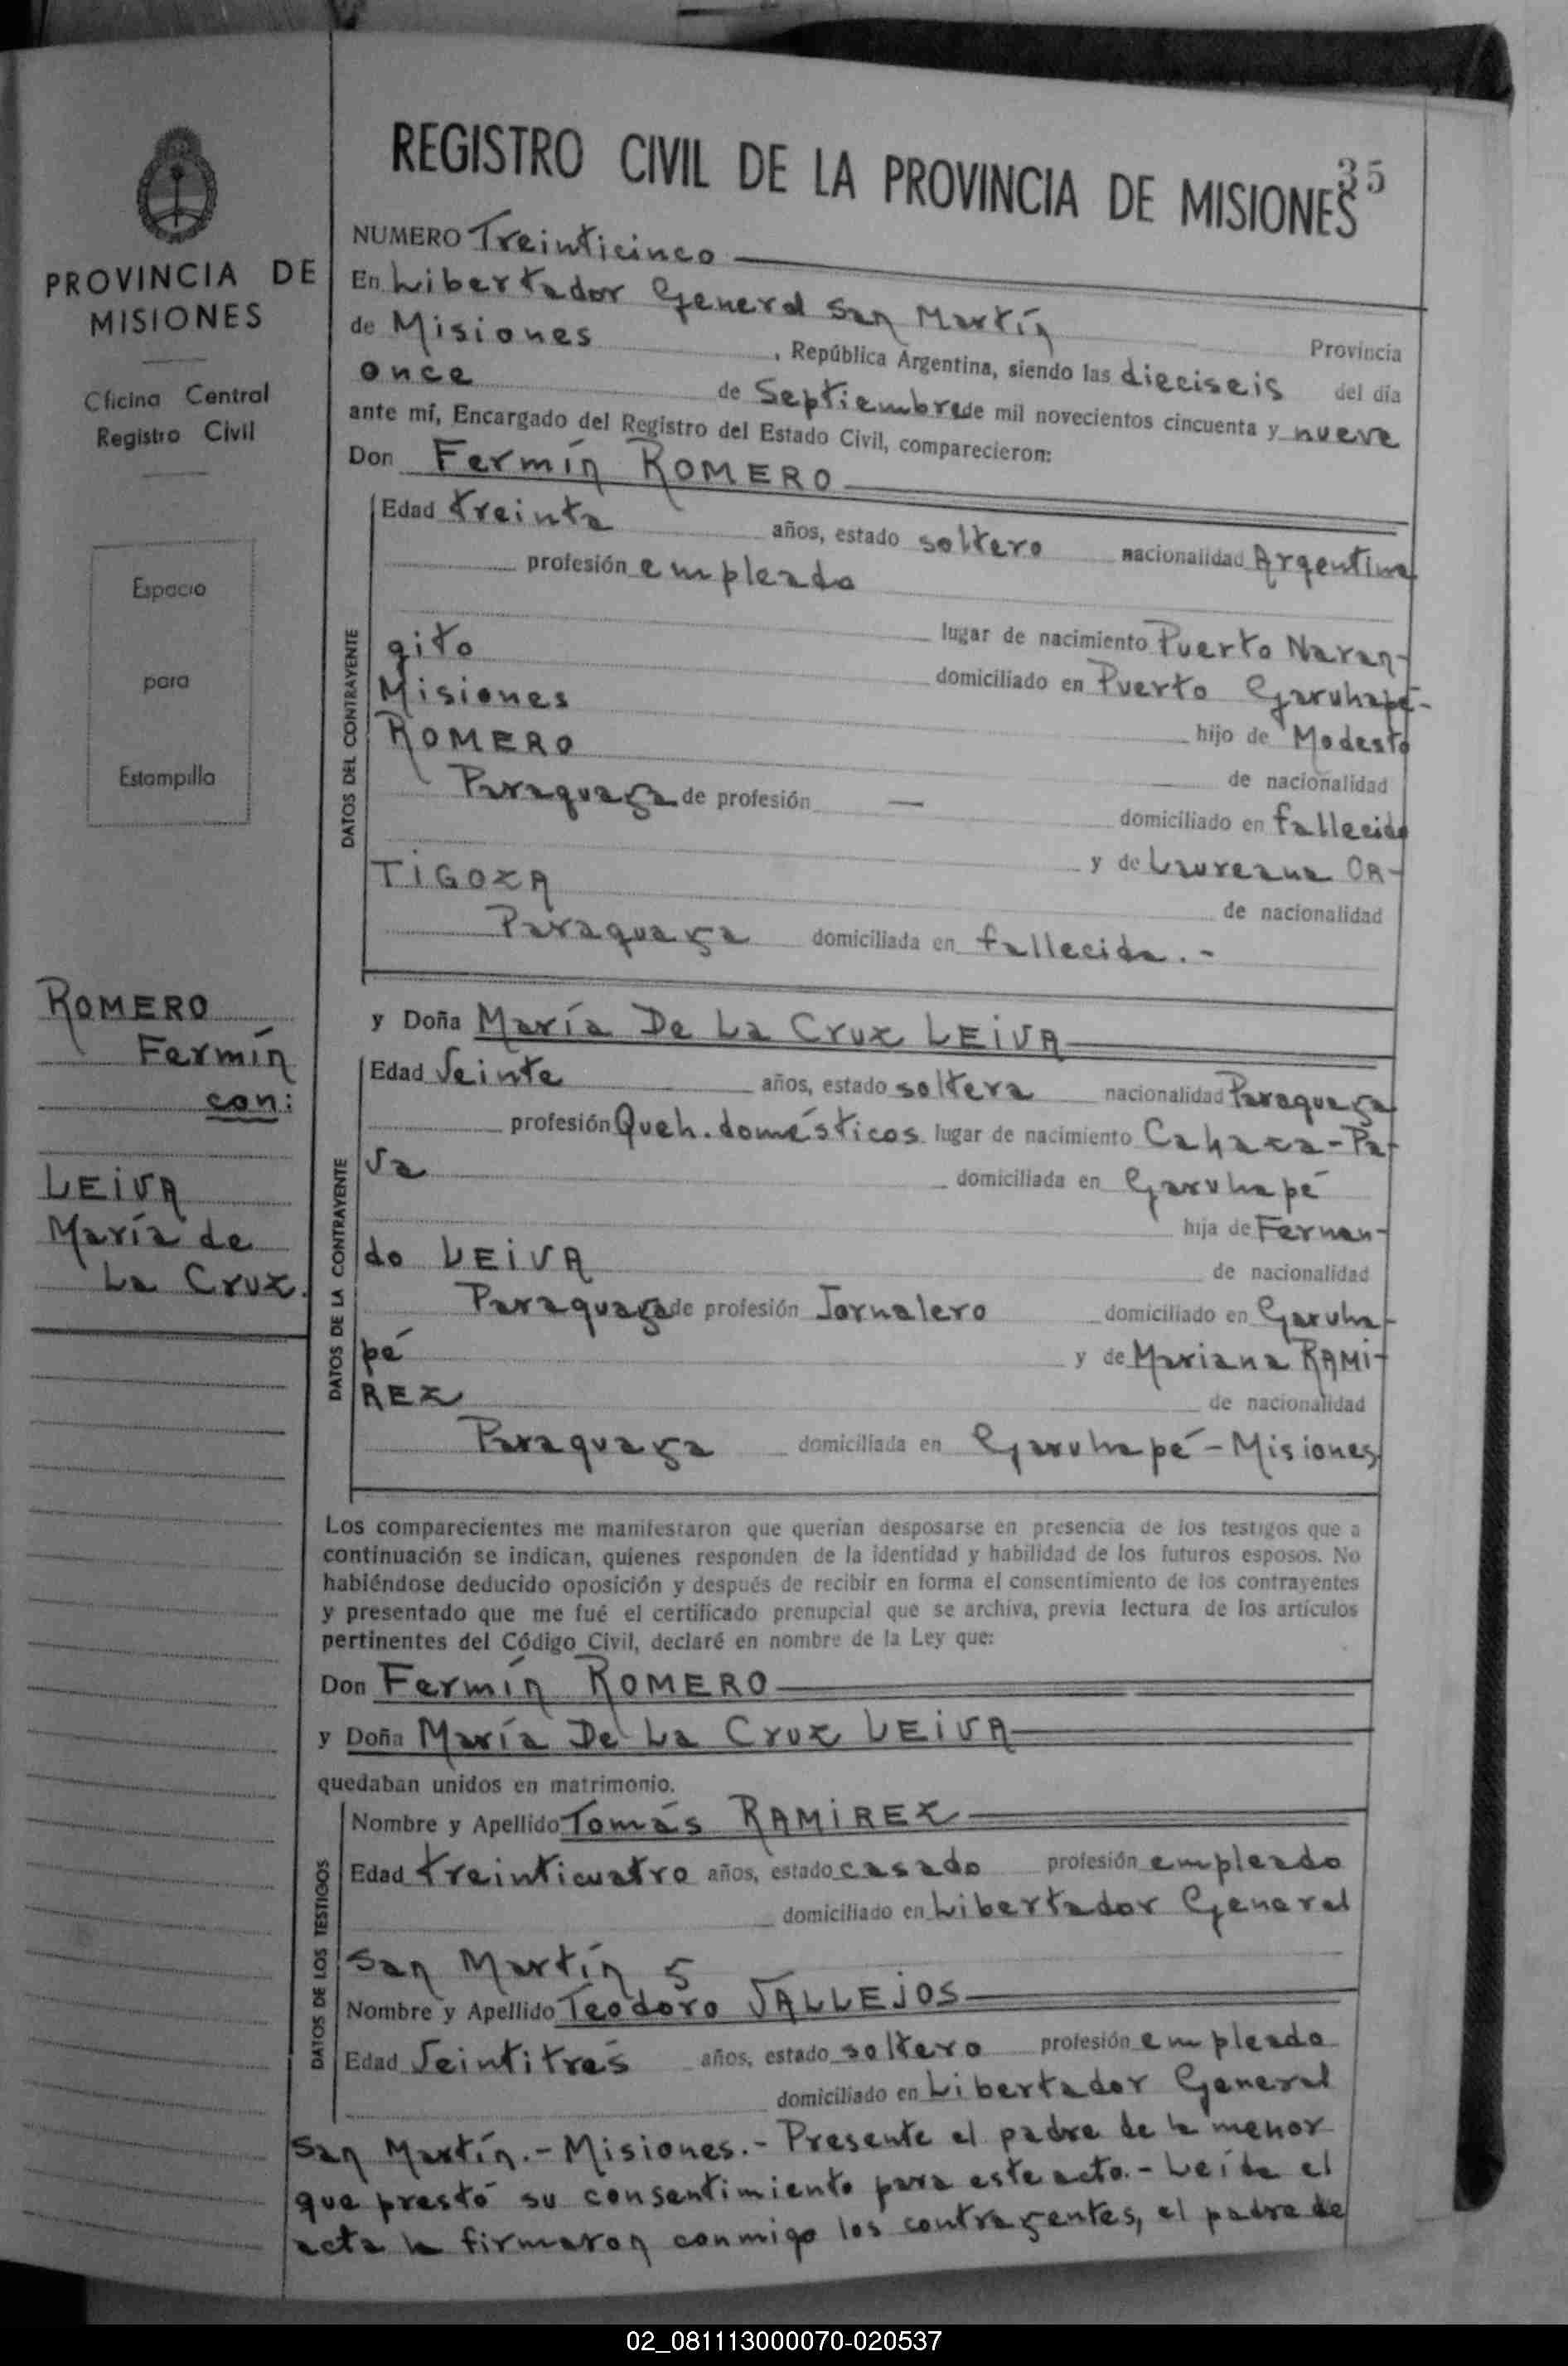 35
REGISTRO CIVIL DE LA PROVINCIA DE MISIONES
PROVINCIA DE
MISIONES
Oficina Central
Registro Civil
Espacio
para
Estampilla
ROMERO
Fermín
con:
LEIVA
María de
La Cruz.
NUMERO Treinticinco
En Libertador General San Martín Provincia
de Misiones, República Argentina, siendo las dieciseis del día
once de Septiembre de mil novecientos cincuenta y nueve
ante mí, Encargado del Registro del Estado Civil, comparecieron:
Don Fermín ROMERO
DATOS DEL CONTRAYENTE
Edad treinta años, estado soltero nacionalidad Argentina
profesión empleado
lugar de nacimiento Puerto Naran-
gito domiciliado en Puerto Garuhapé-
Misiones hijo de Modesto
ROMERO de nacionalidad
Paraguaya de profesión — domiciliado en fallecido
y de Laureana OR-
TIGOZA de nacionalidad
Paraguaya domiciliada en fallecida.-
y Doña María De La Cruz LEIVA
DATOS DE LA CONTRAYENTE
Edad Veinte años, estado soltera nacionalidad Paraguaya
profesión Queh. domésticos lugar de nacimiento
domiciliada en Garuhapé
hija de Fernan-
do LEIVA de nacionalidad
Paraguaya de profesión Jornalero domiciliado en Garuha-
pé y de Mariana RAMI-
REZ de nacionalidad
Paraguaya domiciliada en Garuhapé-Misiones
Los comparecientes me manifestaron que querían desposarse en presencia de los testigos que a
continuación se indican, quienes responden de la identidad y habilidad de los futuros esposos. No
habiéndose deducido oposición y después de recibir en forma el consentimiento de los contrayentes
y presentado que me fué el certificado prenupcial que se archiva, previa lectura de los artículos
pertinentes del Código Civil, declaré en nombre de la Ley que:
Don Fermín ROMERO
y Doña María De La Cruz LEIVA
quedaban unidos en matrimonio.
DATOS DE LOS TESTIGOS
Nombre y Apellido Tomás RAMIREZ
Edad treinticuatro años, estado casado profesión empleado
domiciliado en Libertador General
San Martín
Nombre y Apellido Teodoro VALLEJOS
Edad Veintitres años, estado soltero profesión empleado
domiciliado en Libertador General
San Martín.- Misiones.- Presente el padre de la menor
que prestó su consentimiento para este acto.- Leída el
acta la firmaron conmigo los contrayentes, el padre de
02_081113000070-020537